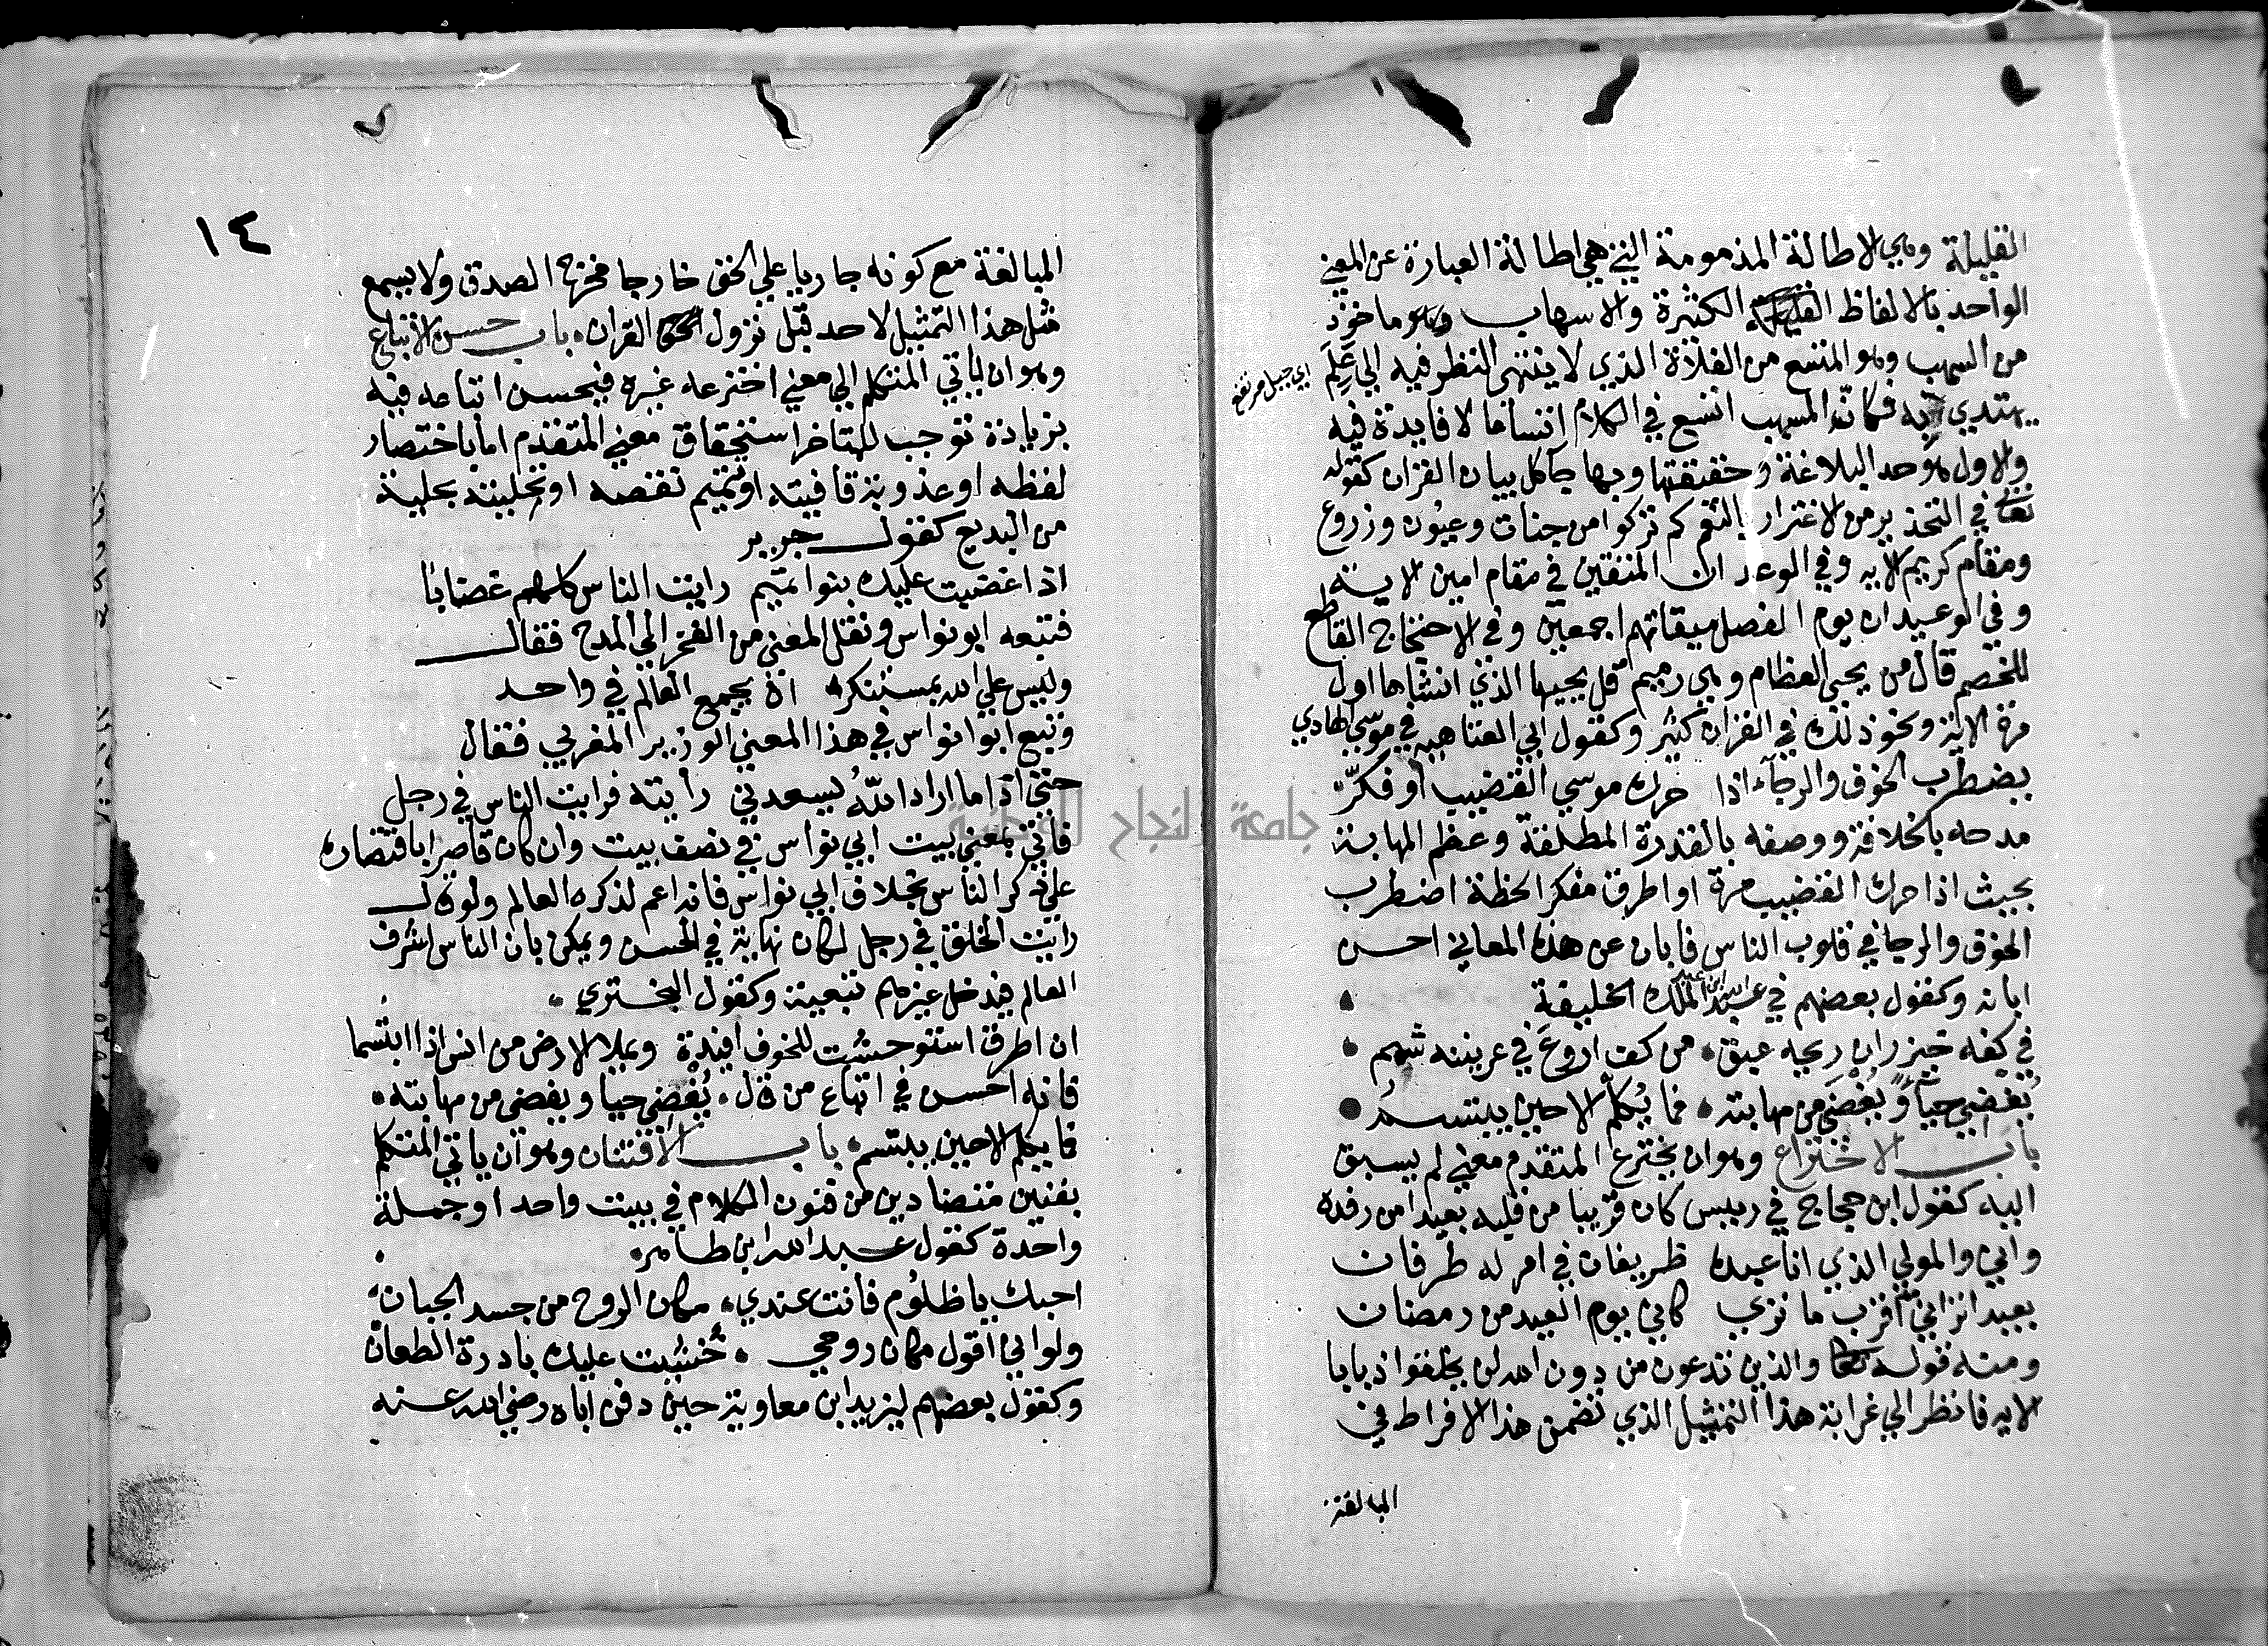 القليلة وهي الاطالة المذمومة التي هي اطالة العبارة عن المعني
الواحد بالالفاظ الكثيرة والاسهاب وهو ماخوذ
من السهب وهو المتسع من الفلاة الذي لا ينتهي النظر فيه الي علم
اي جبل مرتفع
يهتدي به فكانّ المسهب اتسع في الكلام اتساعا لا فايدة فيه
والاول هو حد البلاغة وحقيقتها وبها جآ كل بيان القران كقوله
تعالي في التحذير من الاغترار بالنعم كم تركوا من جنات وعيون وزروع
ومقام كريم الايه وفي الوعد ان المتقين في مقام امين الاية
وفي الوعيد ان يوم الفصل ميقاتهم اجمعين وفي الاحتجاج القاطع
للخصم قال من يحيي العظام وهي رميم قل يحييها الذي انشاها اول
مرة الاية ونحو ذلك في القران كثير وكقول ابي العتاهيه في موسي الهادي
يضطرب الخوف والرجآء اذا حرك موسي القضيب او فكّر
مدحه بالخلافة ووصفه بالقدرة المطلقة وعظم المهابة
بحيث اذا حرك القضيب مرة او اطرق مفكرا لحظة اضطرب
الخوف والرجا في قلوب الناس فابان عن هذه المعاني احسن
ابانه وكقول بعضهم في عبد الله ابن عبد الملك الخليفة
في كفه خيزران ريحه عبق من كف اروع في عرنينه شمم
يُغضي حيآً ويُغضي من مهابته فما يُكلّم الا حين يبتسمُ
باب الاختراع وهو ان يخترع المتقدم معني لم يسبق
اليه كقول ابن حجاج في رييس كان قريبا من قلبه بعيدا من رفده
واني والمولي الذي انا عبده ظريفان في امر له طرفان
بعيدا تراني منه اقرب ما تري كاني يوم العيد من رمضان
ومنه قوله تعالي والذين تدعون من دون الله لن يخلقوا ذبابا
الايه فانظر الي غرابة هذا التمثيل الذي تضمن هذا الافراط في
المبالغة
١٤
المبالغة مع كونه جاريا علي الحق خارجا مخرج الصدق ولا يسمع
مثل هذا التمثيل لاحد قبل نزول القران باب حسن الاتباع
وهو ان ياتي المتكلم الي معني اخترعه غيره فيحسن اتباعه فيه
بزيادة توجب للمتاخر استحقاق معني المتقدم اما باختصار
لفظه او عذوبة قافيته او تتميم نقصه او تحليته بحلية
من البديع كقول جرير
اذا غضبت عليك بنوا تميم رايت الناس كلهم غضابا
فتبعه ابو نواس ونقل المعني من الفخر الي المدح فقال
وليس علي الله بمستنكره ان يجمع العالم في واحد
وتبع ابوا نواس في هذا المعني الوزير المغربي فقال
حتي اذا ما اراد اللّٰهُ يُسعدني رأيته فرايت الناس في رجل
فاتي بمعني بيت ابي نواس في نصف بيت وان كان قاصرا باقتصاره
علي ذكر الناس بخلاف ابي نواس فانه اعم لذكره العالم ولو قال
رايت الخلق في رجل لكان نهاية في الحسن ويمكن بان الناس اشرف
العالم فيدخل غيرهم تبعية وكقول البختري
ان اطرق استوحشت للخوف افيدة ويملا الارض من انس اذا ابتسما
فانه احسن في اتباع من قال يُغضي حيا ويغضي من مهابته
فما يكلم الا حين يبتسم باب الافتنان وهو ان ياتي المتكلم
بفنين متضادين من فنون الكلام في بيت واحد او جملة
واحدة كقول عبد الله ابن طاهر
احبك يا ظلوم فانت عندي مكان الروح من جسد الجبان
ولو اني اقول مكان روحي خشيت عليك بادرة الطعان
وكقول بعضهم ليزيد ابن معاوية حين دفن اباه رضي الله عنه
جامعة النجاح الوطنية